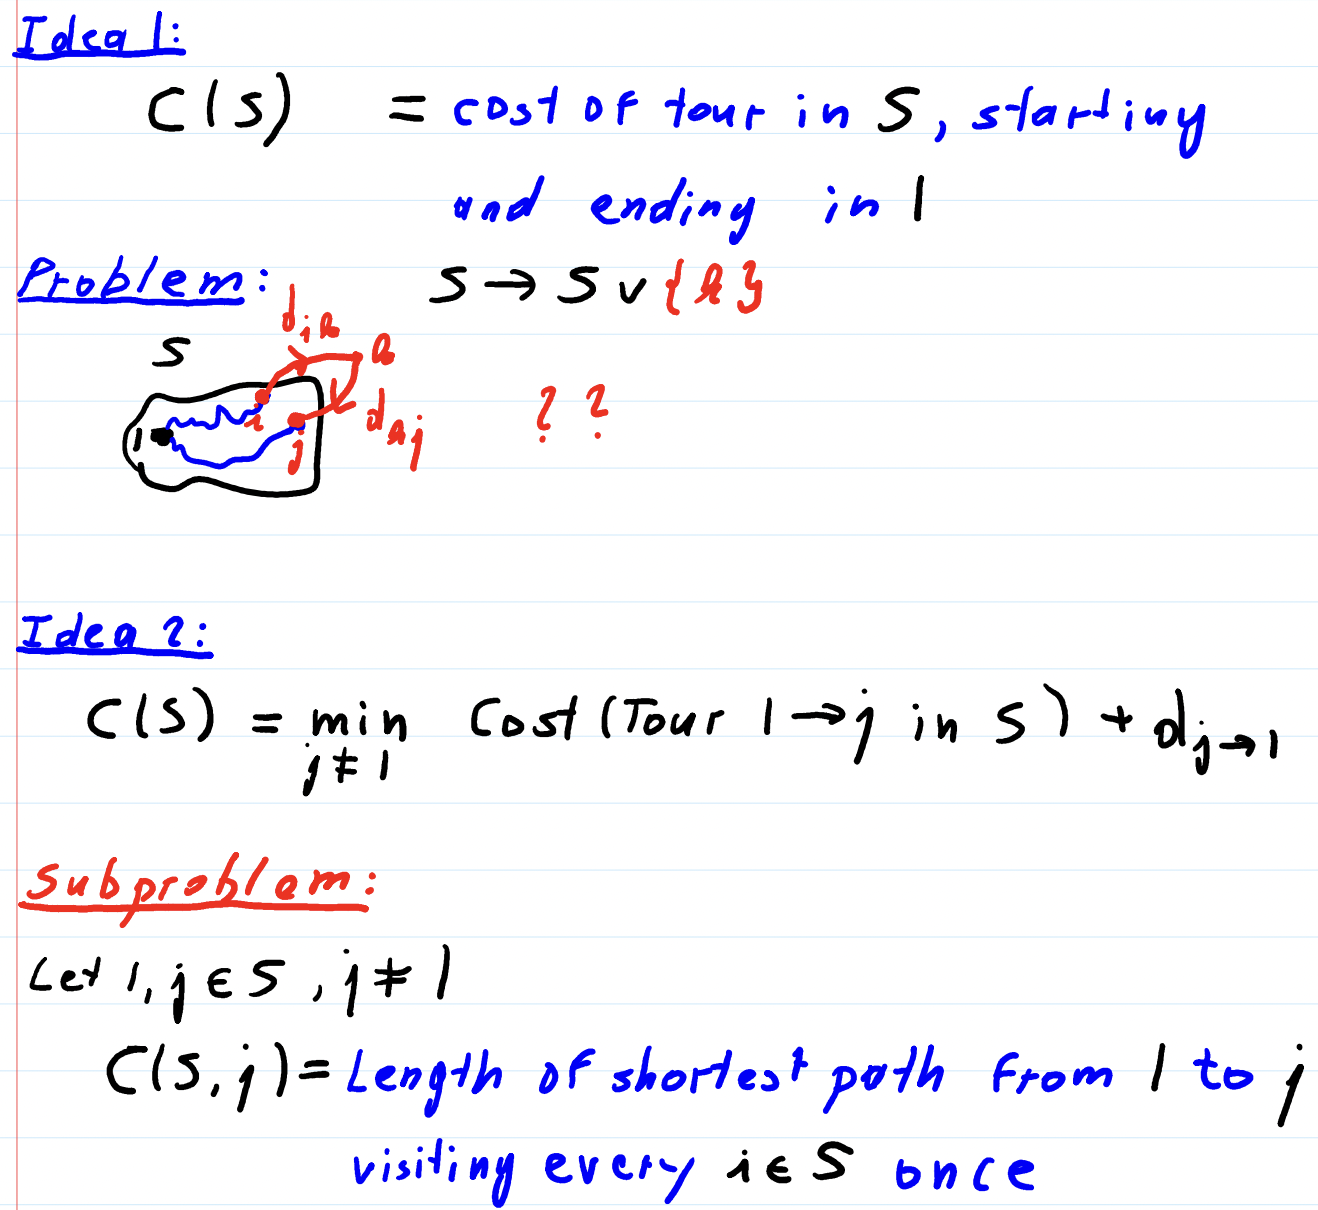 Idea 1:
C(S) = cost of tour in S, starting
and ending in 1
Problem: S → S ∪ {k}
d_ik
S k
1 i j d_kj ? ?
Idea 2:
C(S) = min Cost (Tour 1 → j in S) + d_j→1
j ≠ 1
Subproblem:
Let 1, j ∈ S, j ≠ 1
C(S, j) = Length of shortest path from 1 to j
visiting every i ∈ S once